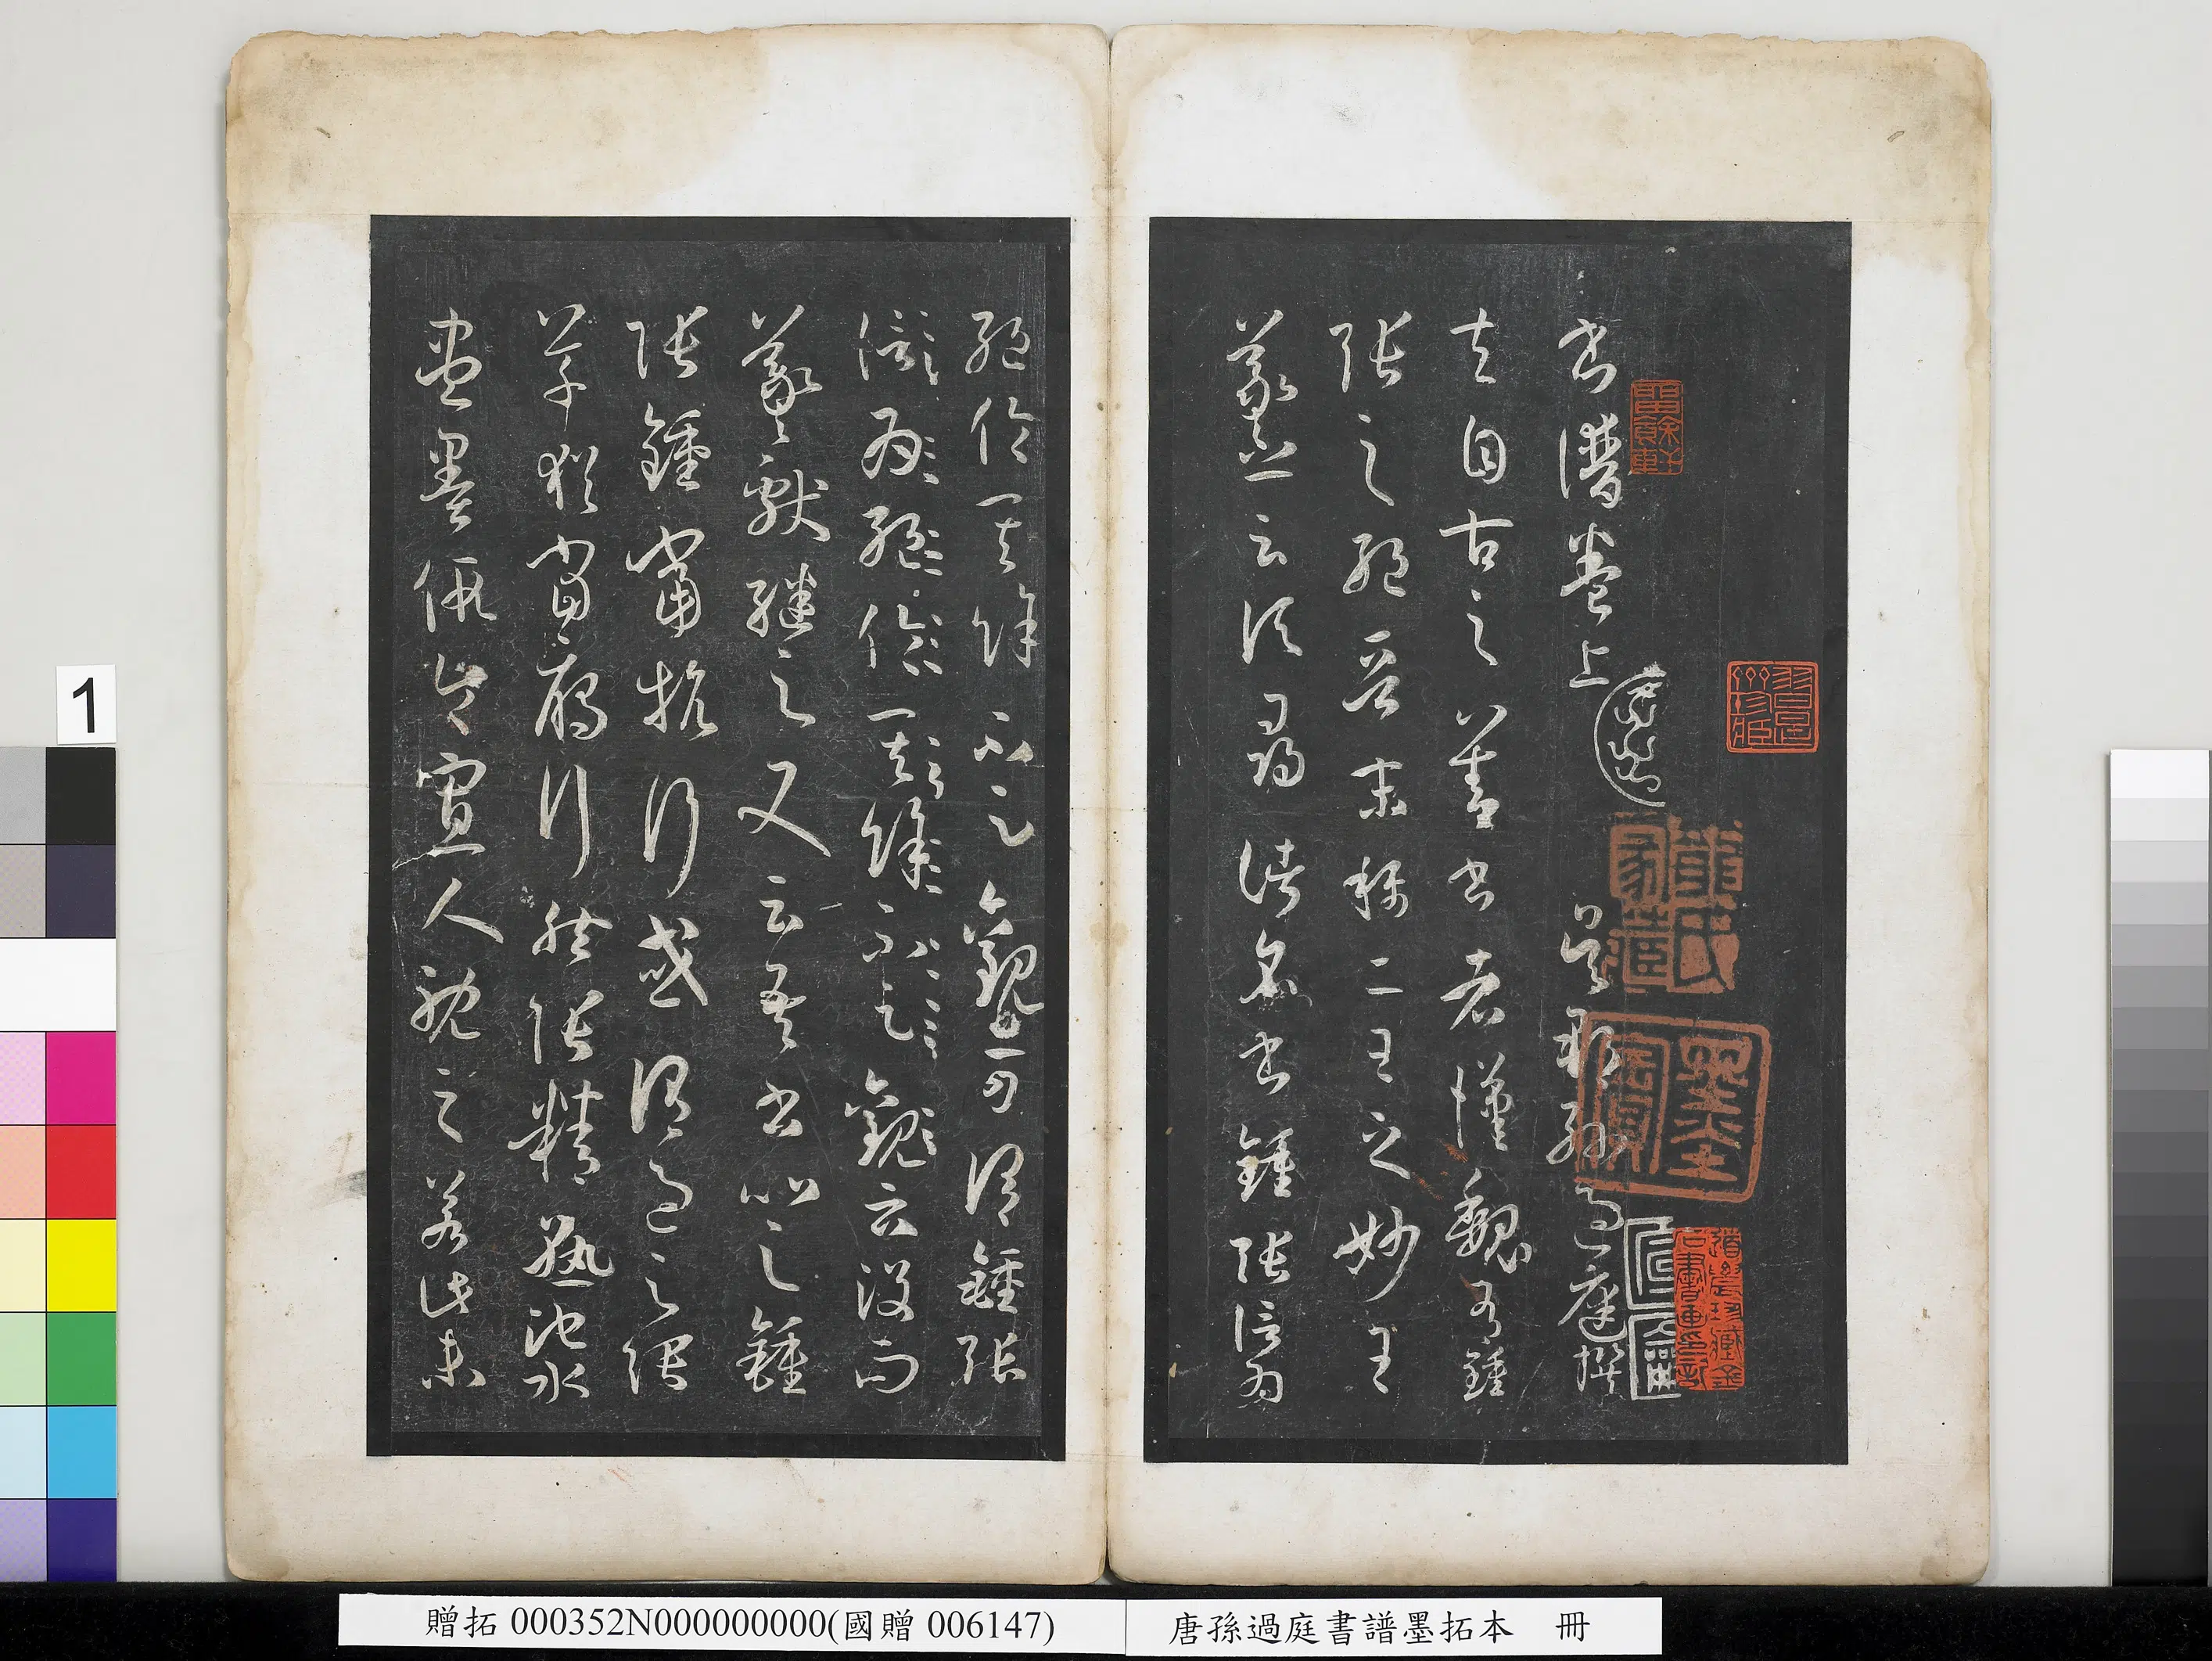 書譜卷上 吳郡孫過庭撰
夫自古之善書者漢魏有鍾
張之絕晉末稱二王之妙王
羲之云頃尋諸名書鍾張信為
絕倫其餘不足觀可謂鍾張
信為絕倫其餘不足觀云沒而
羲獻繼之又云吾書比之鍾
張鍾當抗行或謂過之張
草猶當鴈行然張精熟池水
盡墨假令寡人耽之若此未
1
贈拓 000352N000000000(國贈 006147)
唐孫過庭書譜墨拓本 冊